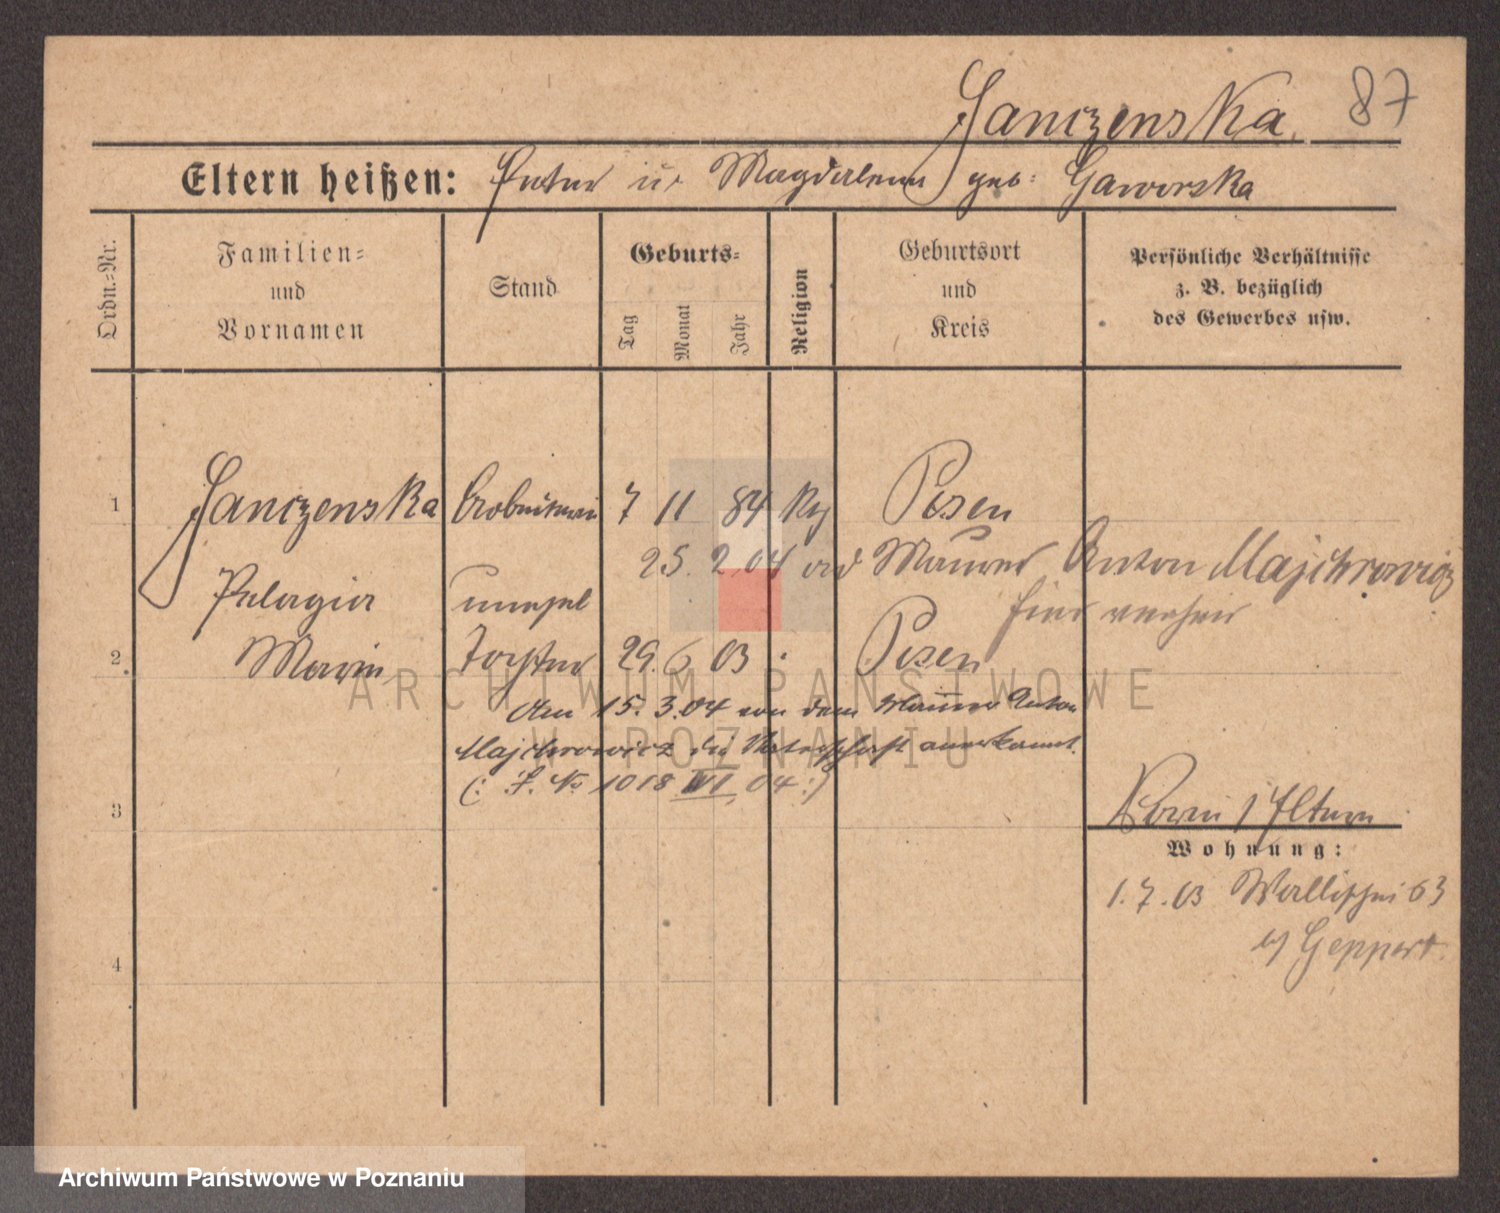 Janczenska 87
Eltern heißen: Peter u. Magdalena geb: Gaworska
Ordn.-Nr.
Familien- und Vornamen
Stand
Geburts-
Tag
Monat
Jahr
Religion
Geburtsort und Kreis
Persönliche Verhältnisse z. B. bezüglich des Gewerbes usw.
1 Janczenska Arbeiterin 7 11 84 Posen
25. 2 04 Maurer Anton Majchrowicz
Pelagia unehel
2 Maria Tochter 29. 6 03 Posen
ARCHIWUM PAŃSTWOWE
Am 15. 3.04 von dem Maurer Anton
Majchrowicz die Vaterschaft anerkannt.
W POZNANIU
(: J. No 1018 VI, 04 :)
3
Wohnung:
1. 7. 03 Wallischei 63
4
Geppert.
Archiwum Państwowe w Poznaniu